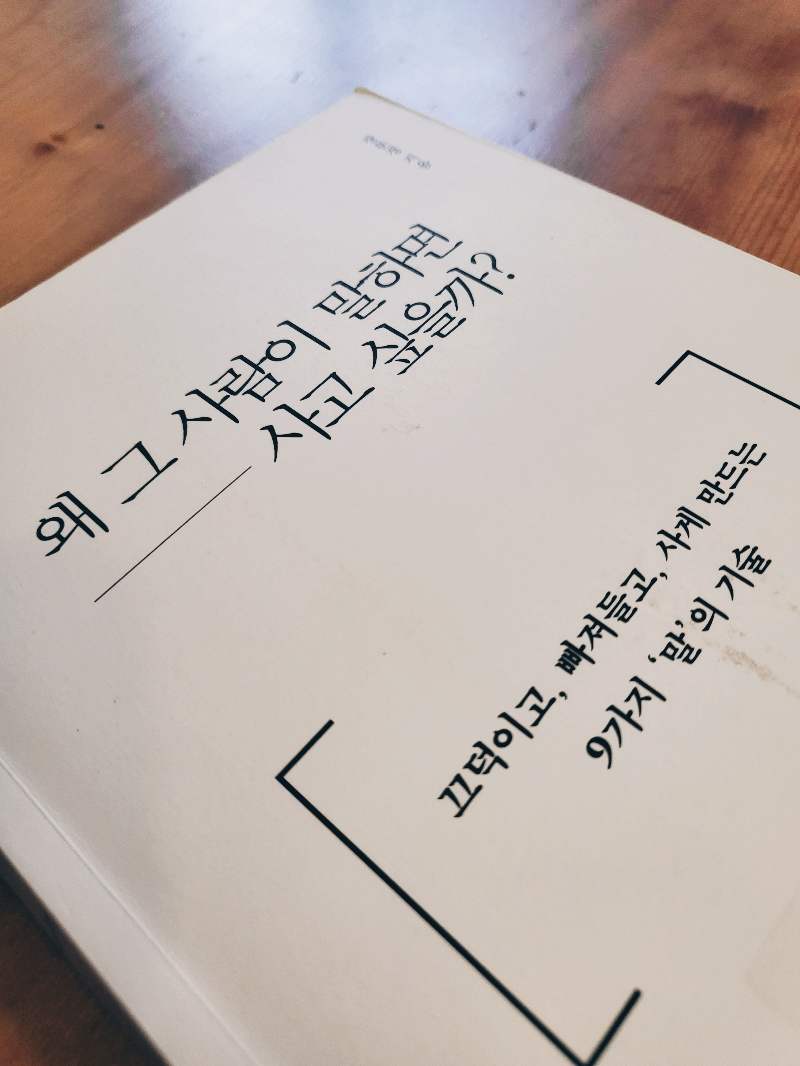 왜 그 사람이 말하면
사고 싶을까?
끄덕이고, 빠져들고, 사게 만드는
9가지 ‘말’의 기술